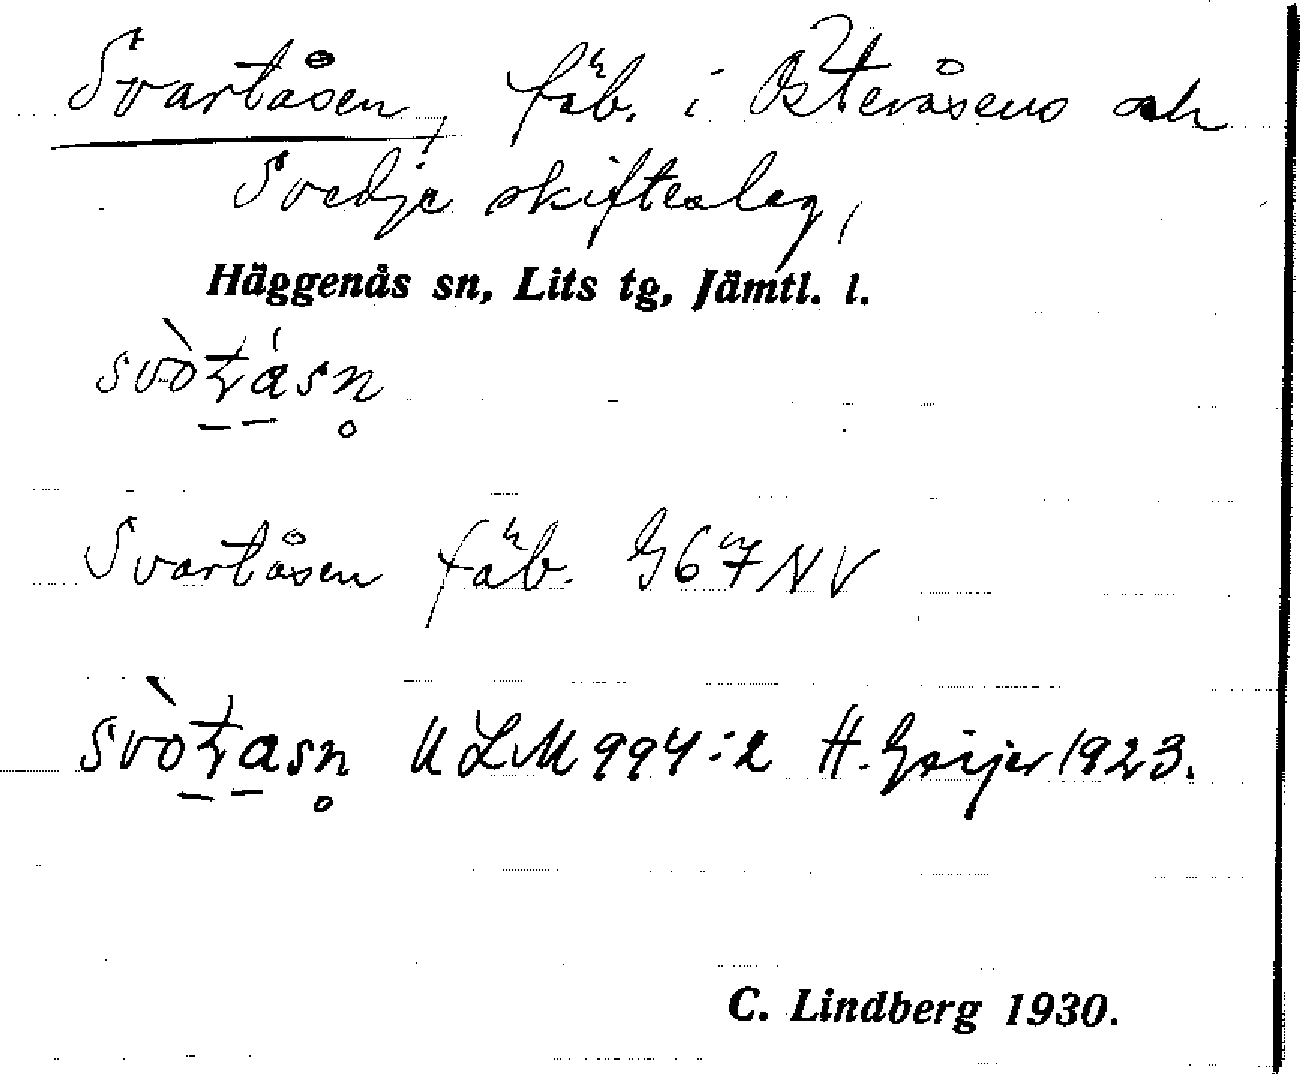 Svartåsen, fäb. i Österåsens och
Svedje skifteslag,
Häggenås sn, Lits tg, Jämtl. l.
Svartåsen fäb. G67NV
ULM 994:2 H. Geijer 1923.
C. Lindberg 1930.